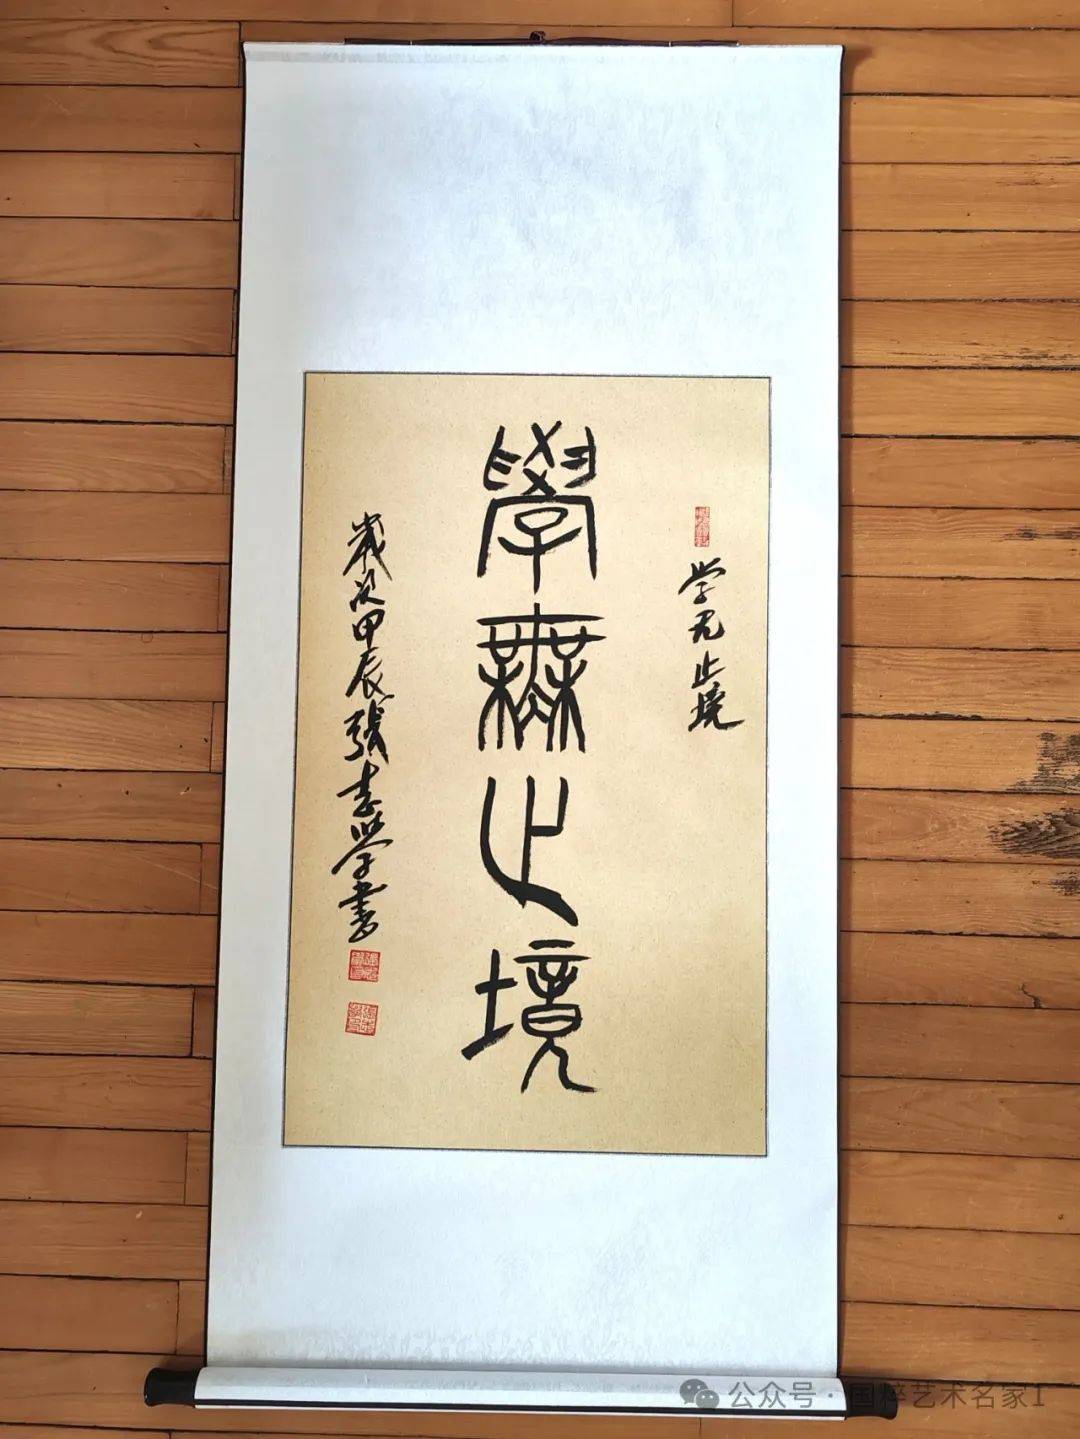 学无止境
學無止境
歲次甲辰張志学書
公众号·国粹艺术名家1